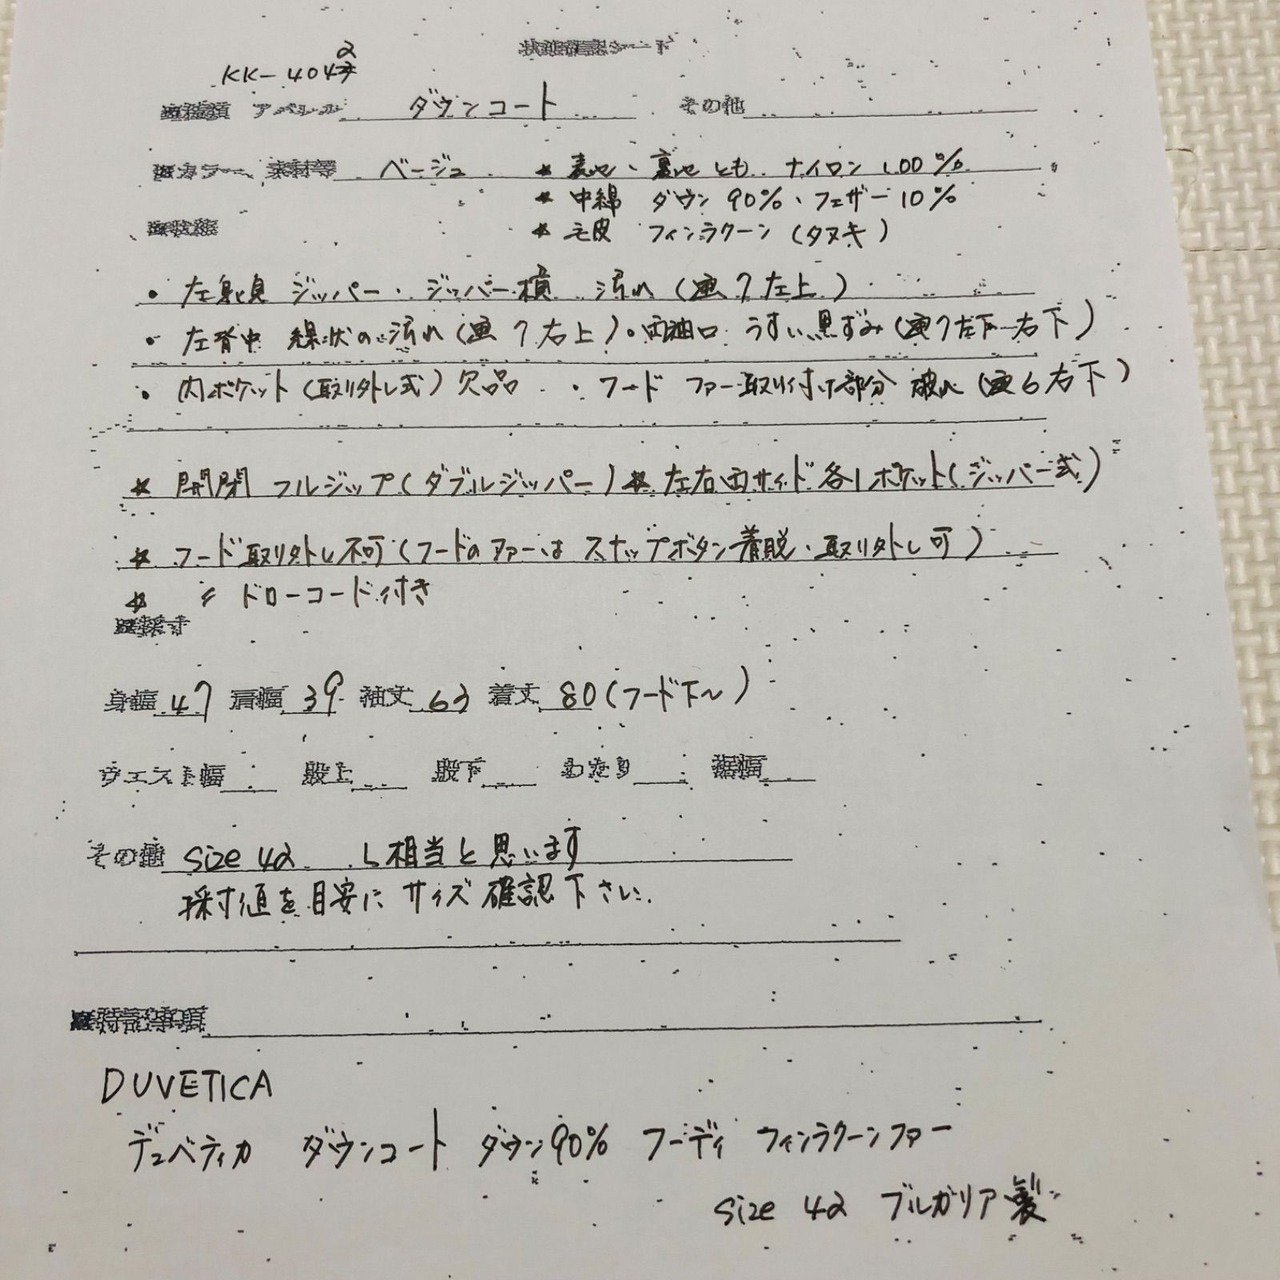 状態確認シート
KK-4042
■種類 アパレル ダウンコート その他
■カラー、素材等 ベージュ * 表地・裏地とも ナイロン 100%
* 中綿 ダウン 90%・フェザー10%
■状態 * 毛皮 フィンラクーン (タヌキ)
・左身頃 ジッパー・ジッパー横 汚れ (画7左上)
・左背中 線状の汚れ (画7右上)・両袖口 うすい黒ずみ (画7左下右下)
・内ポケット (取り外し式) 欠品 ・フード ファー取り付け部分 破れ (画6右下)
* 開閉 フルジップ (ダブルジッパー) * 左右両サイド各1ポケット (ジッパー式)
* フード取り外し不可 (フードのファーは スナップボタン着脱・取り外し可)
* 〃 ドローコード付き
■採寸
身幅 47 肩幅 39 袖丈 63 着丈 80 (フード下〜)
ウエスト幅 股上 股下 わたり 裾幅
その他 size 42 L相当と思います
採寸値を目安に サイズ確認下さい.
■特記事項
DUVETICA
デュベティカ ダウンコート ダウン90% フーディ フィンラクーンファー
size 42 ブルガリア製